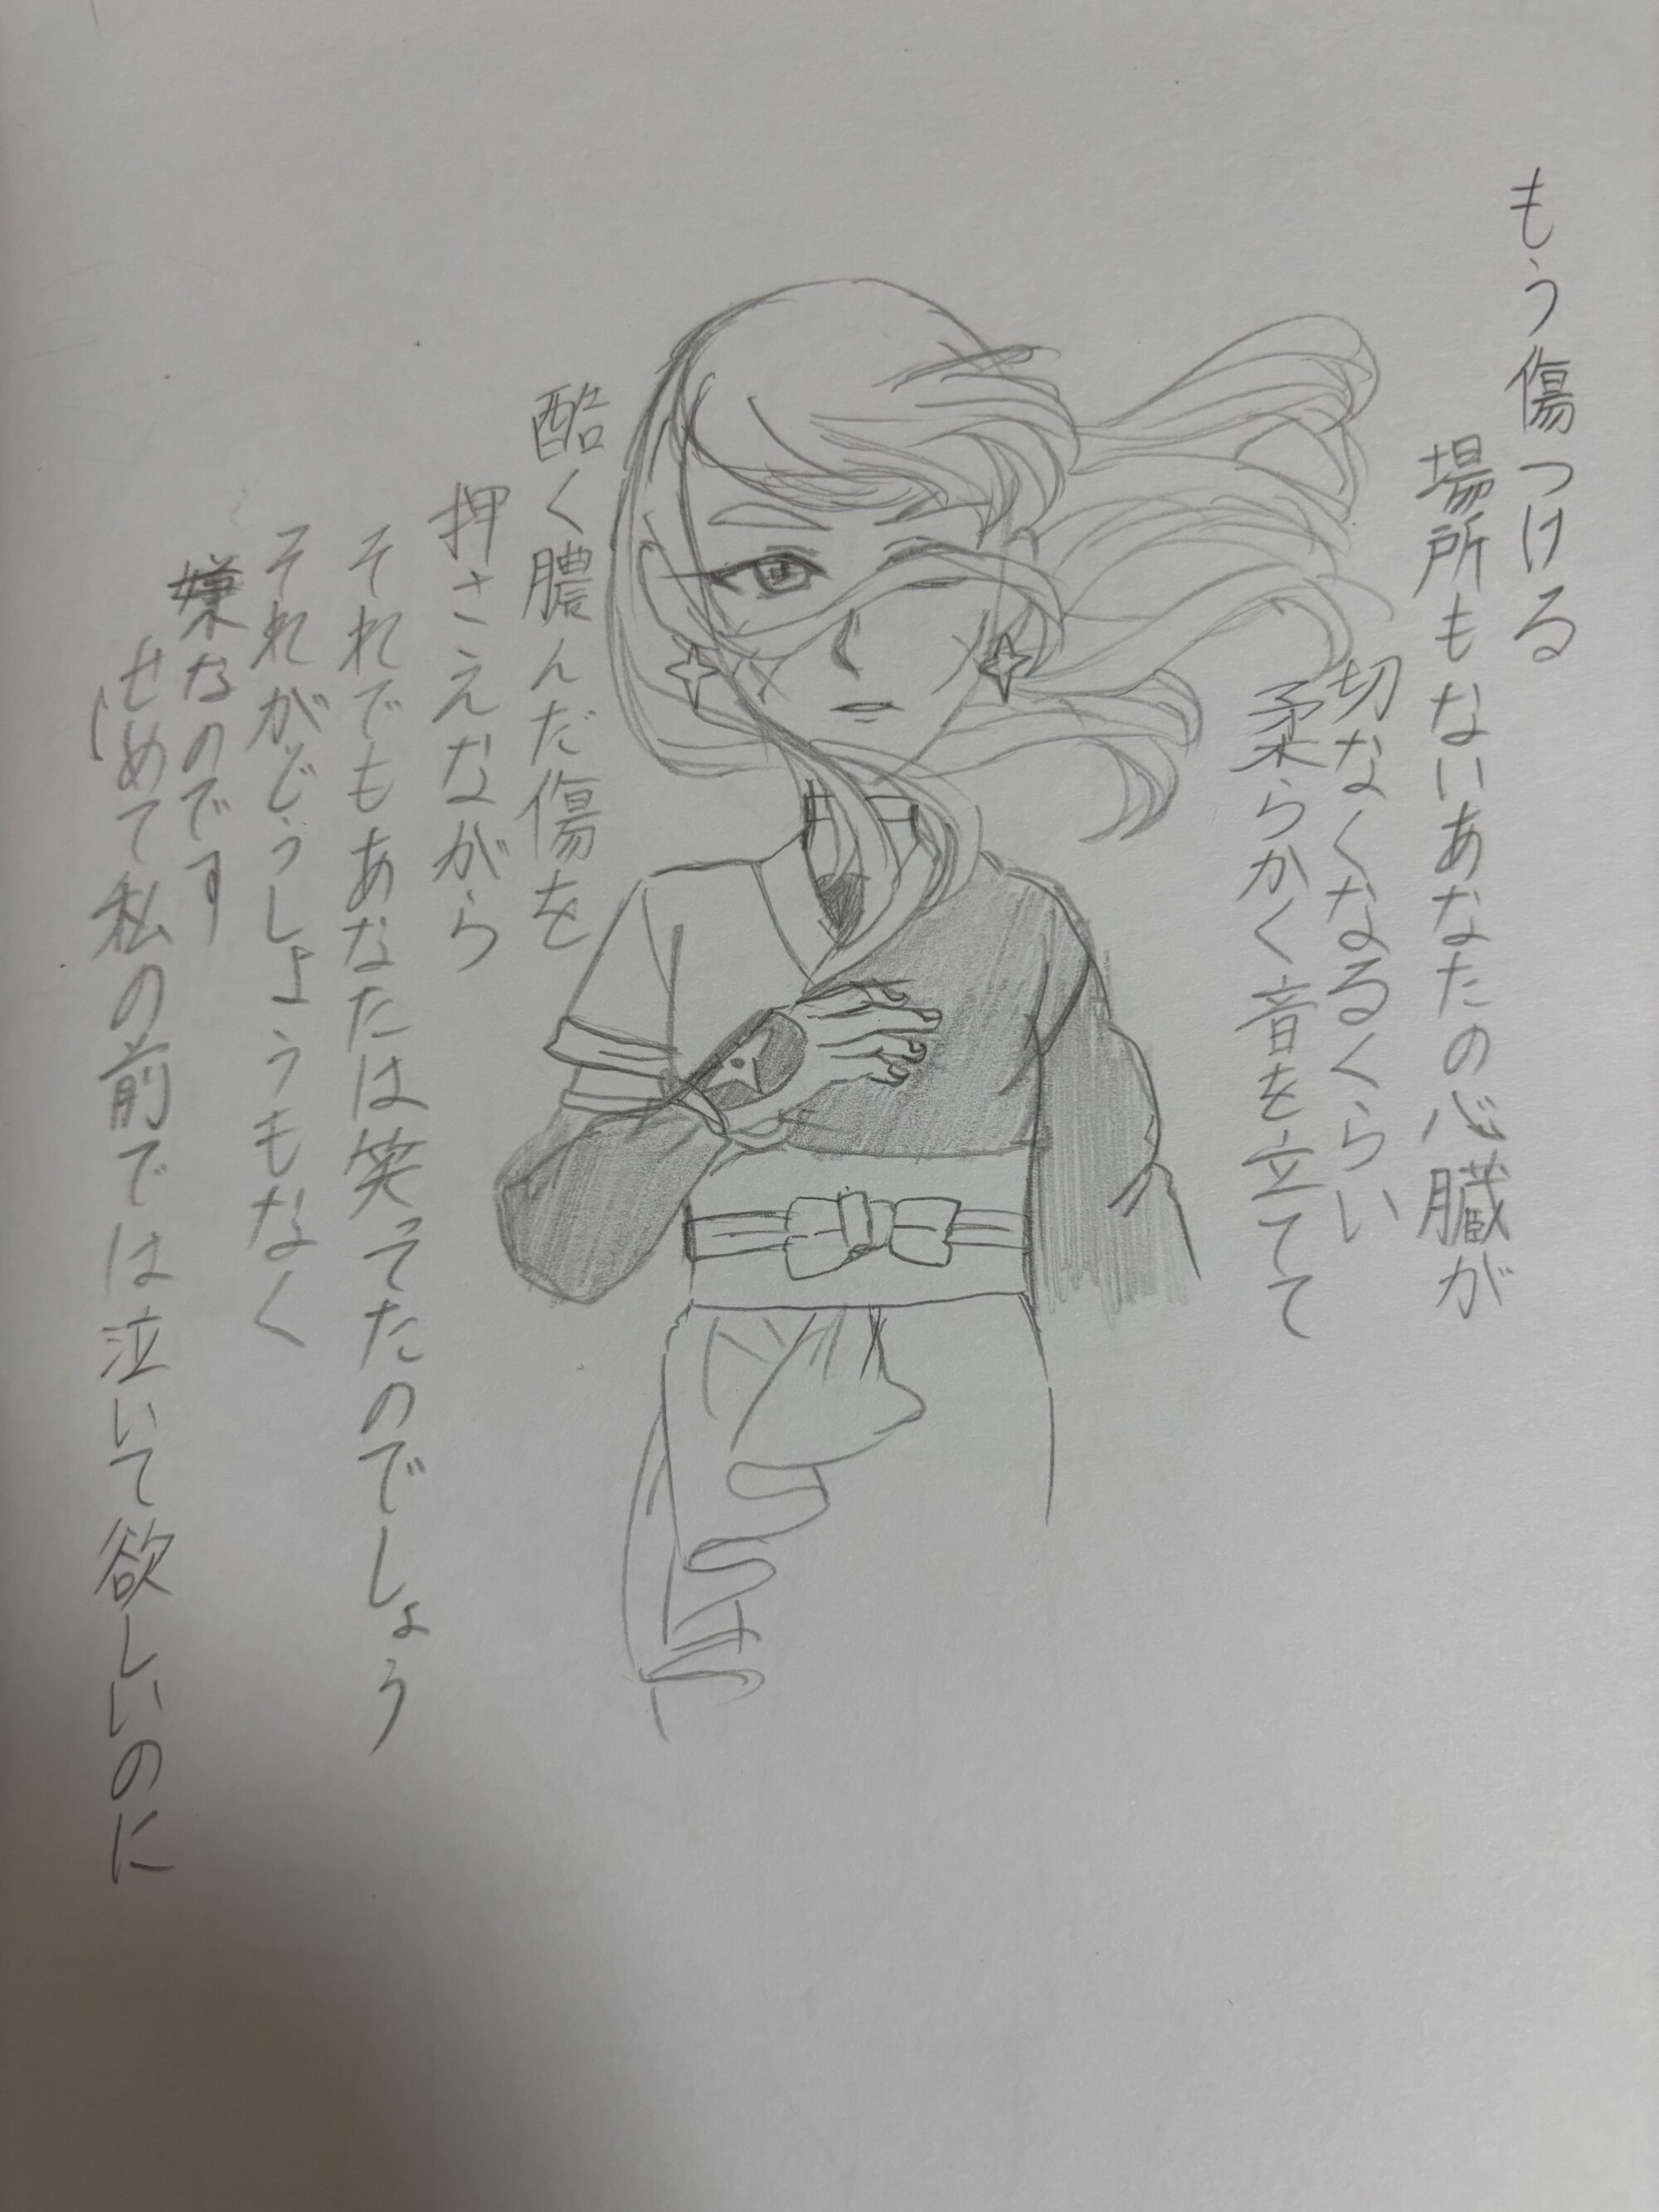 もう傷つける
場所もないあなたの心臓が
切なくなるくらい
柔らかく音を立てて
酷く膿んだ傷を
押さえながら
それでもあなたは笑ってたのでしょう
それがどうしようもなく
嫌なのです
せめて私の前では泣いて欲しいのに